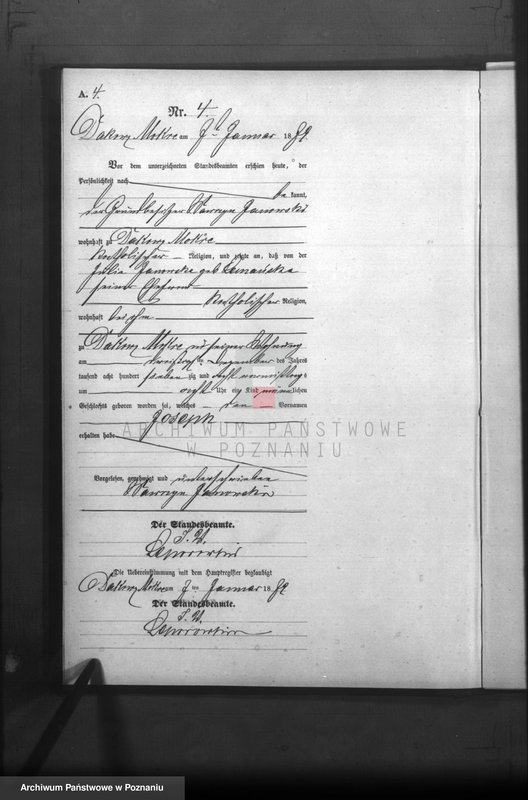 A. 4.
Nr. 4.
Dakowy Mokre am 7ten Januar 1879
Vor dem unterzeichneten Standesbeamten erschien heute, der
Persönlichkeit nach
bekannt,
der Grundbesitzer Janowski
wohnhaft zu Dakowy Mokre
katholischer Religion, und zeigte an, daß von der
Julia Janowska geb.
seiner Ehefrau
katholischer Religion,
wohnhaft bei ihm
zu Dakowy Mokre in seiner Wohnung
am Dezember des Jahres
tausend acht hundert siebenzig und acht
um acht Uhr ein Kind männlichen
Geschlechts geboren worden sei, welches den Vornamen
Joseph
erhalten habe
Vorgelesen, genehmigt und unterschrieben
Der Standesbeamte.
Die Uebereinstimmung mit dem Hauptregister beglaubigt
Dakowy Mokre am 7ten Januar 1879
Der Standesbeamte.
ARCHIWUM PAŃSTWOWE
W POZNANIU
Archiwum Państwowe w Poznaniu